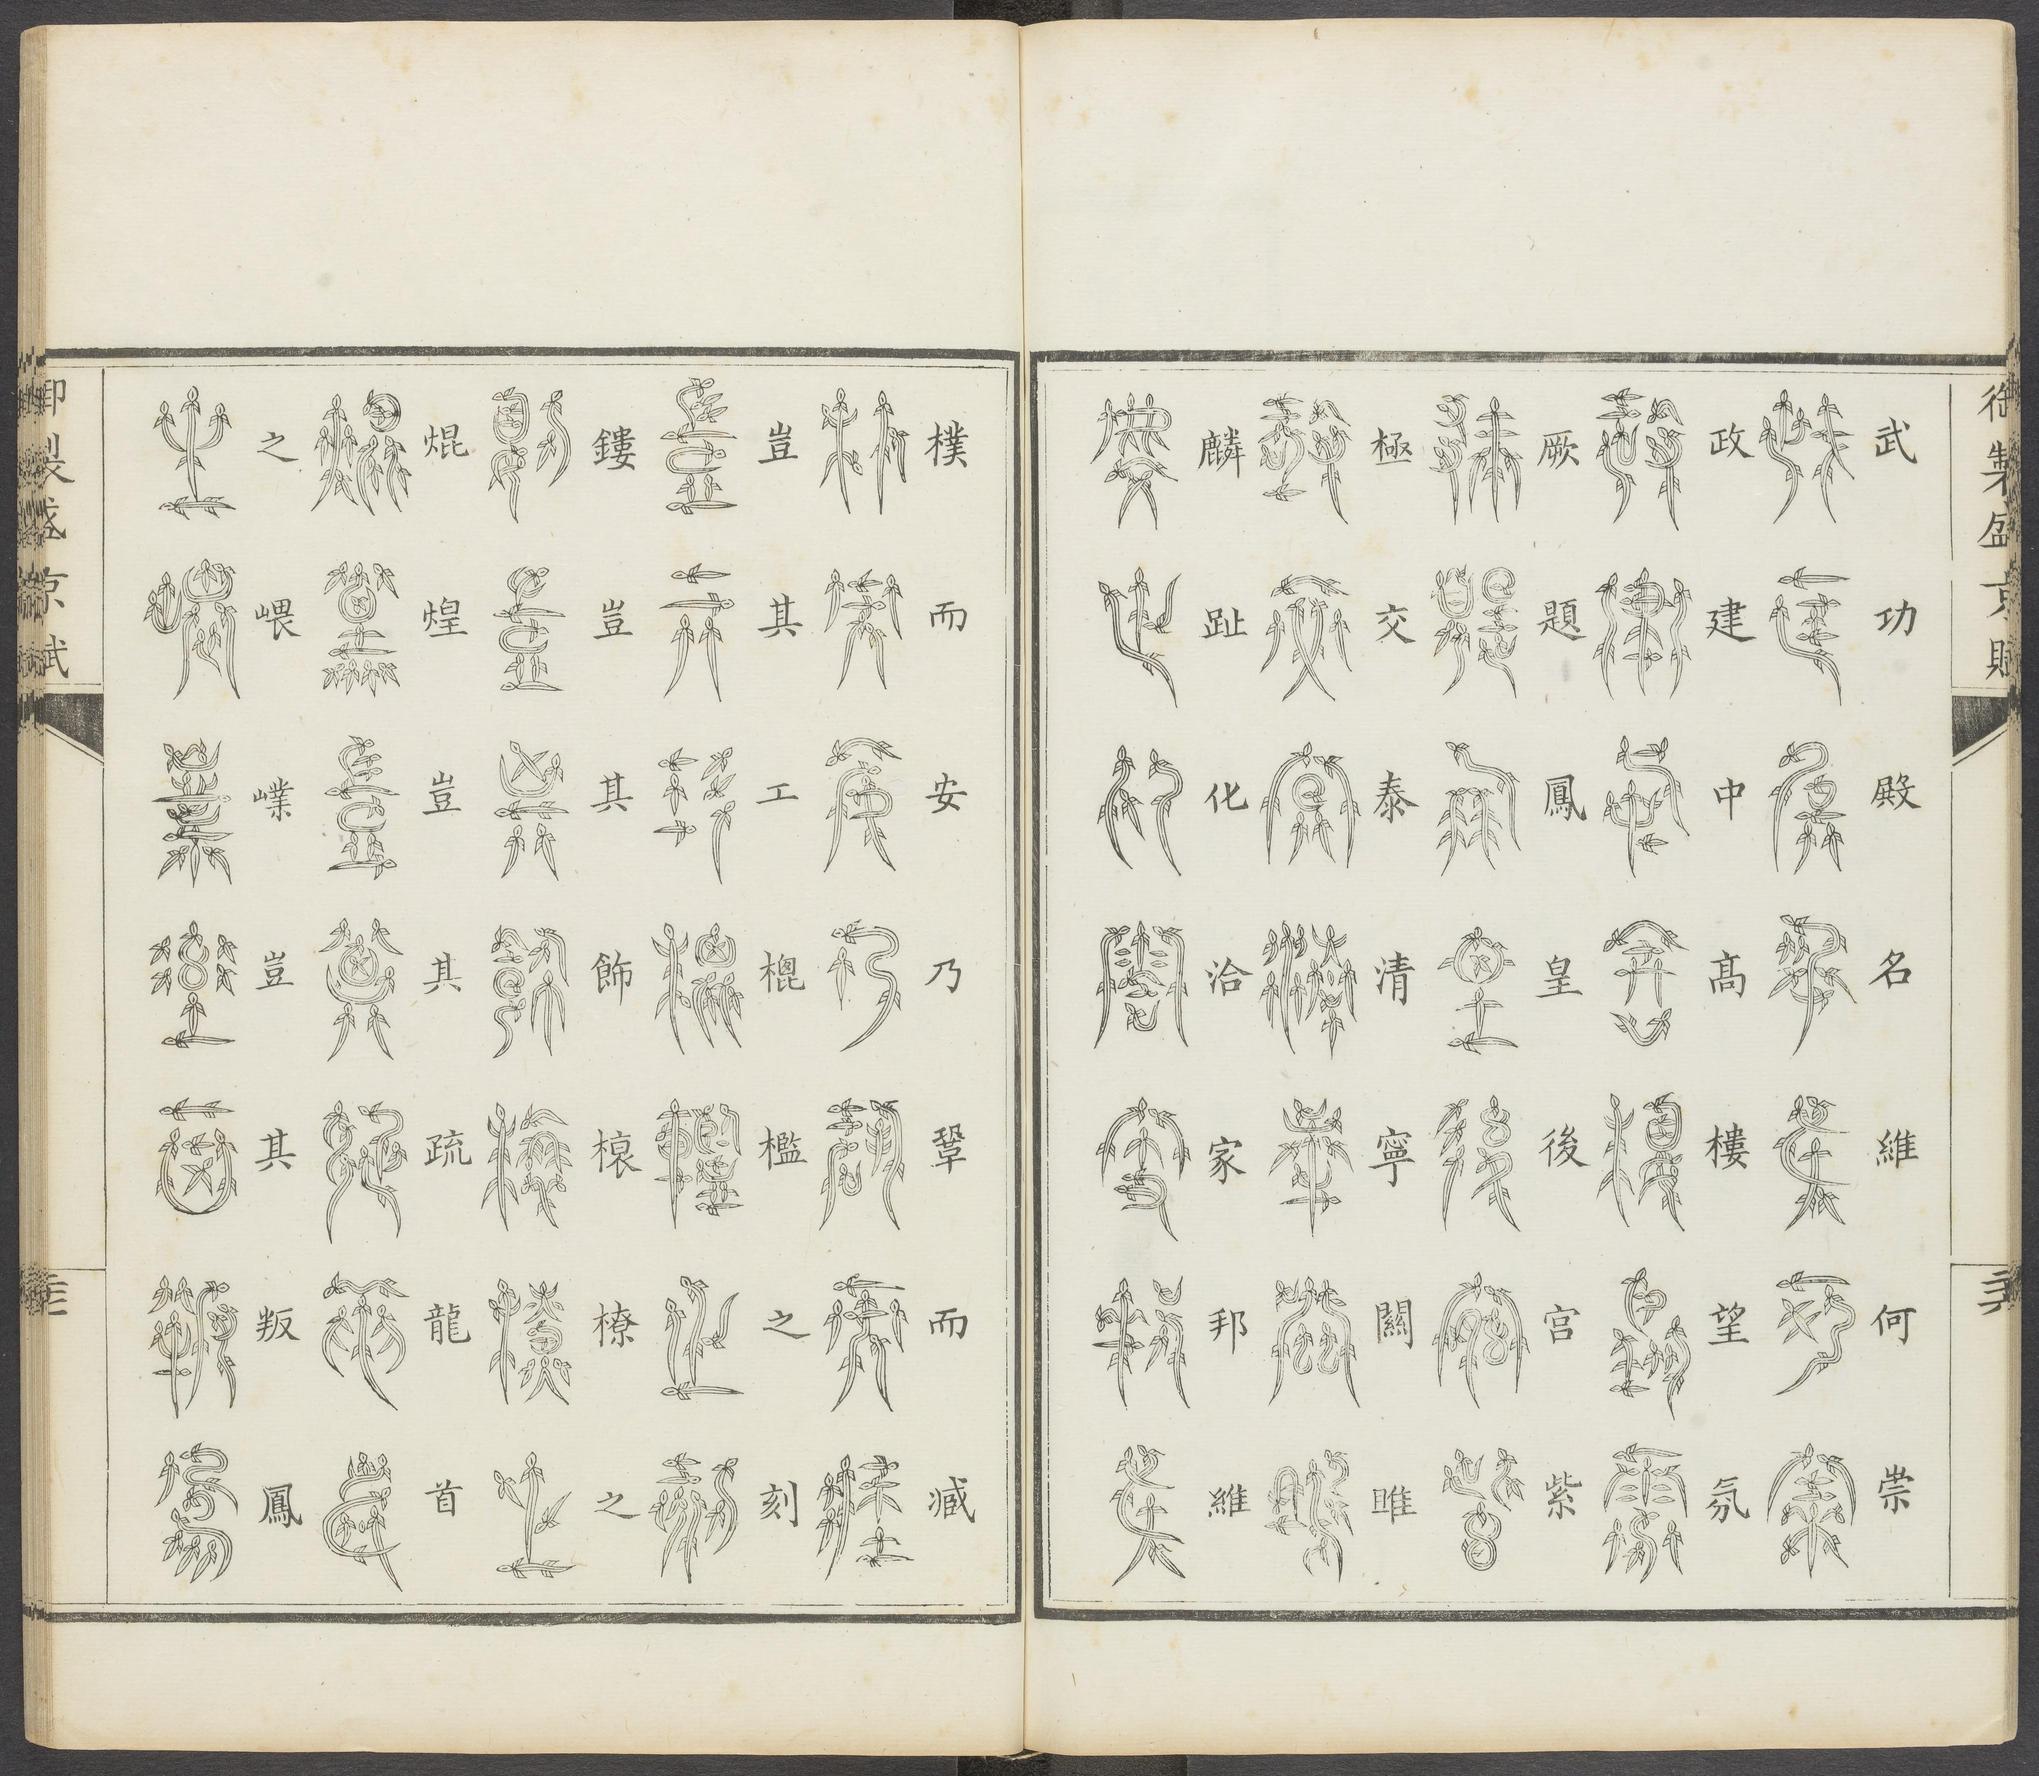 御製盛京賦
武功殿名維何崇
政建中高樓望氛
厥題鳳皇後宫紫
極交泰清寧關雎
麟趾化洽家邦維
樸而安乃鞏而減
豈其工槐檻之刻
鏤豈其飾榱橑之
焜煌豈其疏龍首
之㟪嶪豈其叛鳳
御製盛京賦